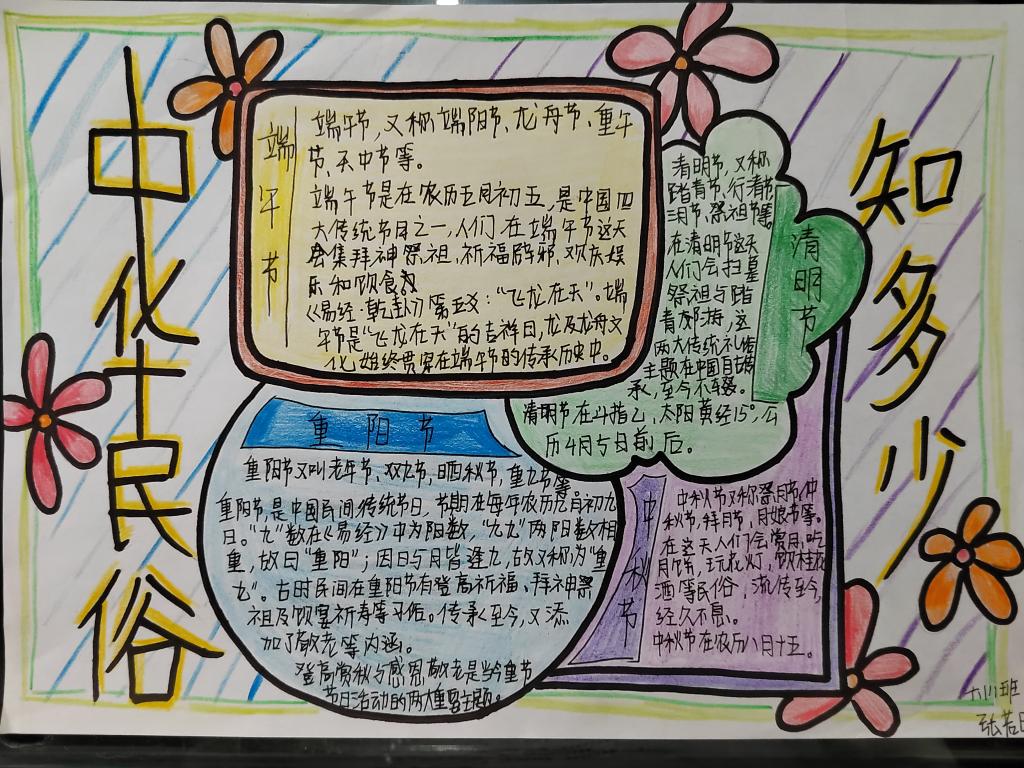 中化民俗
知多少
端午节
端午节,又称端阳节、龙舟节、重午
节、天中节等。
端午节是在农历五月初五,是中国四
大传统节日之一,人们在端午节这天
会集拜神祭祖,祈福辟邪,欢庆娱
乐和饮食
《易经·乾卦》第五爻:“飞龙在天”。端
午节是“飞龙在天”的吉祥日,龙及龙舟文
化始终贯穿在端午节的传承历史中。
清明节
清明节,又称
踏青节、行清节
三月节、祭祖节等。
在清明节这天
人们会扫墓
祭祖与踏
青郊游,这
两大传统礼俗
主题在中国自古
承,至今不辍。
清明节在斗指乙,太阳黄经15°,公
历4月5日前后。
重阳节
重阳节又叫老年节、双九节,晒秋节,重九节等。
重阳节是中国民间传统节日,节期在每年农历九月初九
日。“九”数在《易经》中为阳数,“九九”两阳数相
重,故曰“重阳”;因日与月皆逢九,故又称为“重
九”。古时民间在重阳节有登高祈福、拜神祭
祖及饮宴祈寿等习俗。传承至今,又添
加了敬老等内涵。
登高赏秋与感恩敬老是当今重节
节日活动的两大重要主题。
中秋节
中秋节又称祭月节、仲
秋节,拜月节、月娘节等。
在这天人们会赏月,吃
月饼,玩花灯,饮桂花
酒等民俗,流传至今,
经久不息。
中秋节在农历八月十五。
六(1)班
张若